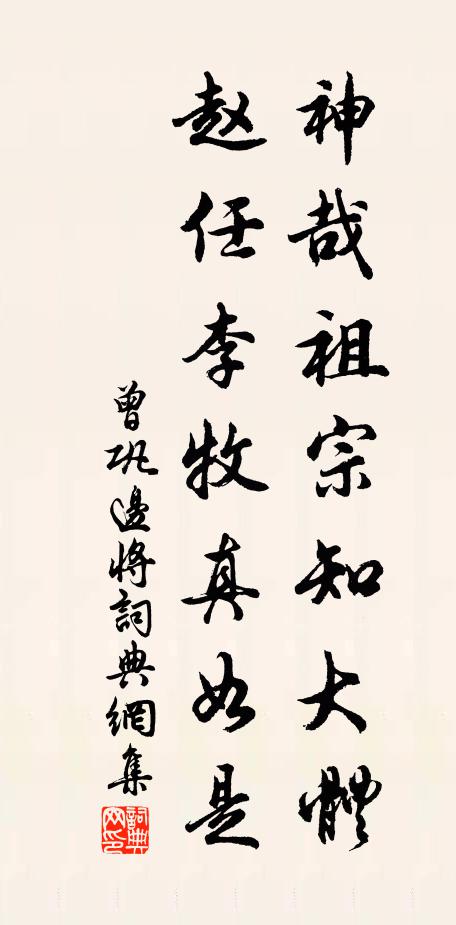 神哉祖宗知大體
赵任李牧真如是
曾巩邊将詞典網集
詞典网印